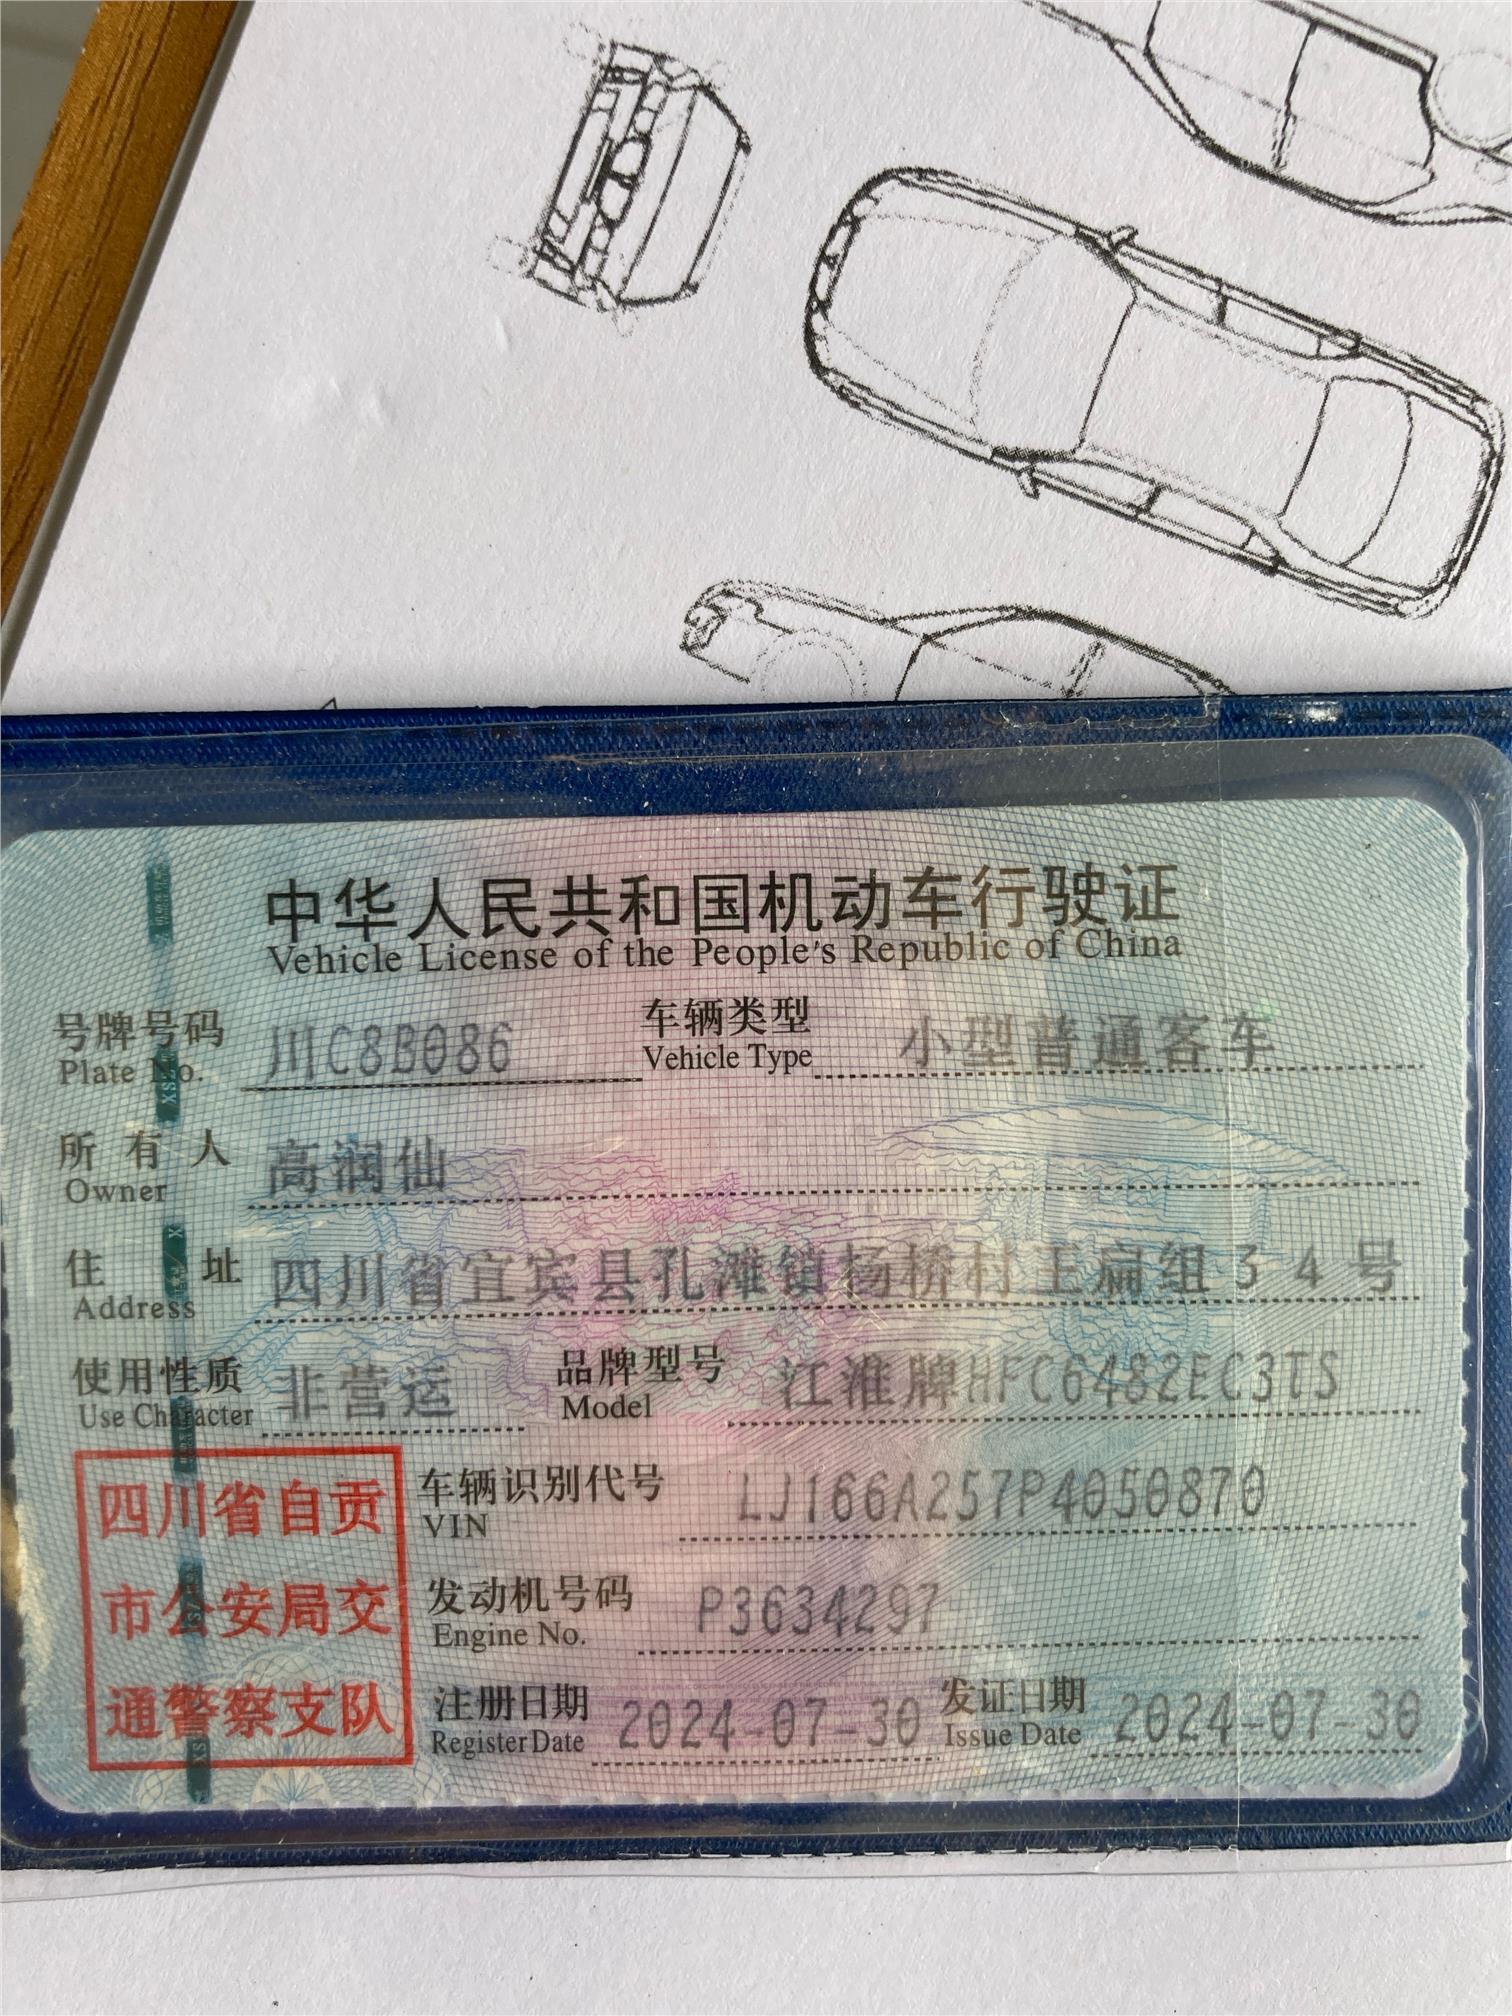 中华人民共和国机动车行驶证
Vehicle License of the People's Republic of China
号牌号码 川C8B086 车辆类型 小型普通客车
Plate No. Vehicle Type
所有人 高润仙
Owner
住址 四川省宜宾县孔滩镇杨桥村王扁组34号
Address
使用性质 非营运 品牌型号 江淮牌HFC6482EC3TS
Use Character Model
四川省自贡
市公安局交
通警察支队
车辆识别代号 LJ166A257P4050870
VIN
发动机号码 P3634297
Engine No.
注册日期 2024-07-30 发证日期 2024-07-30
Register Date Issue Date